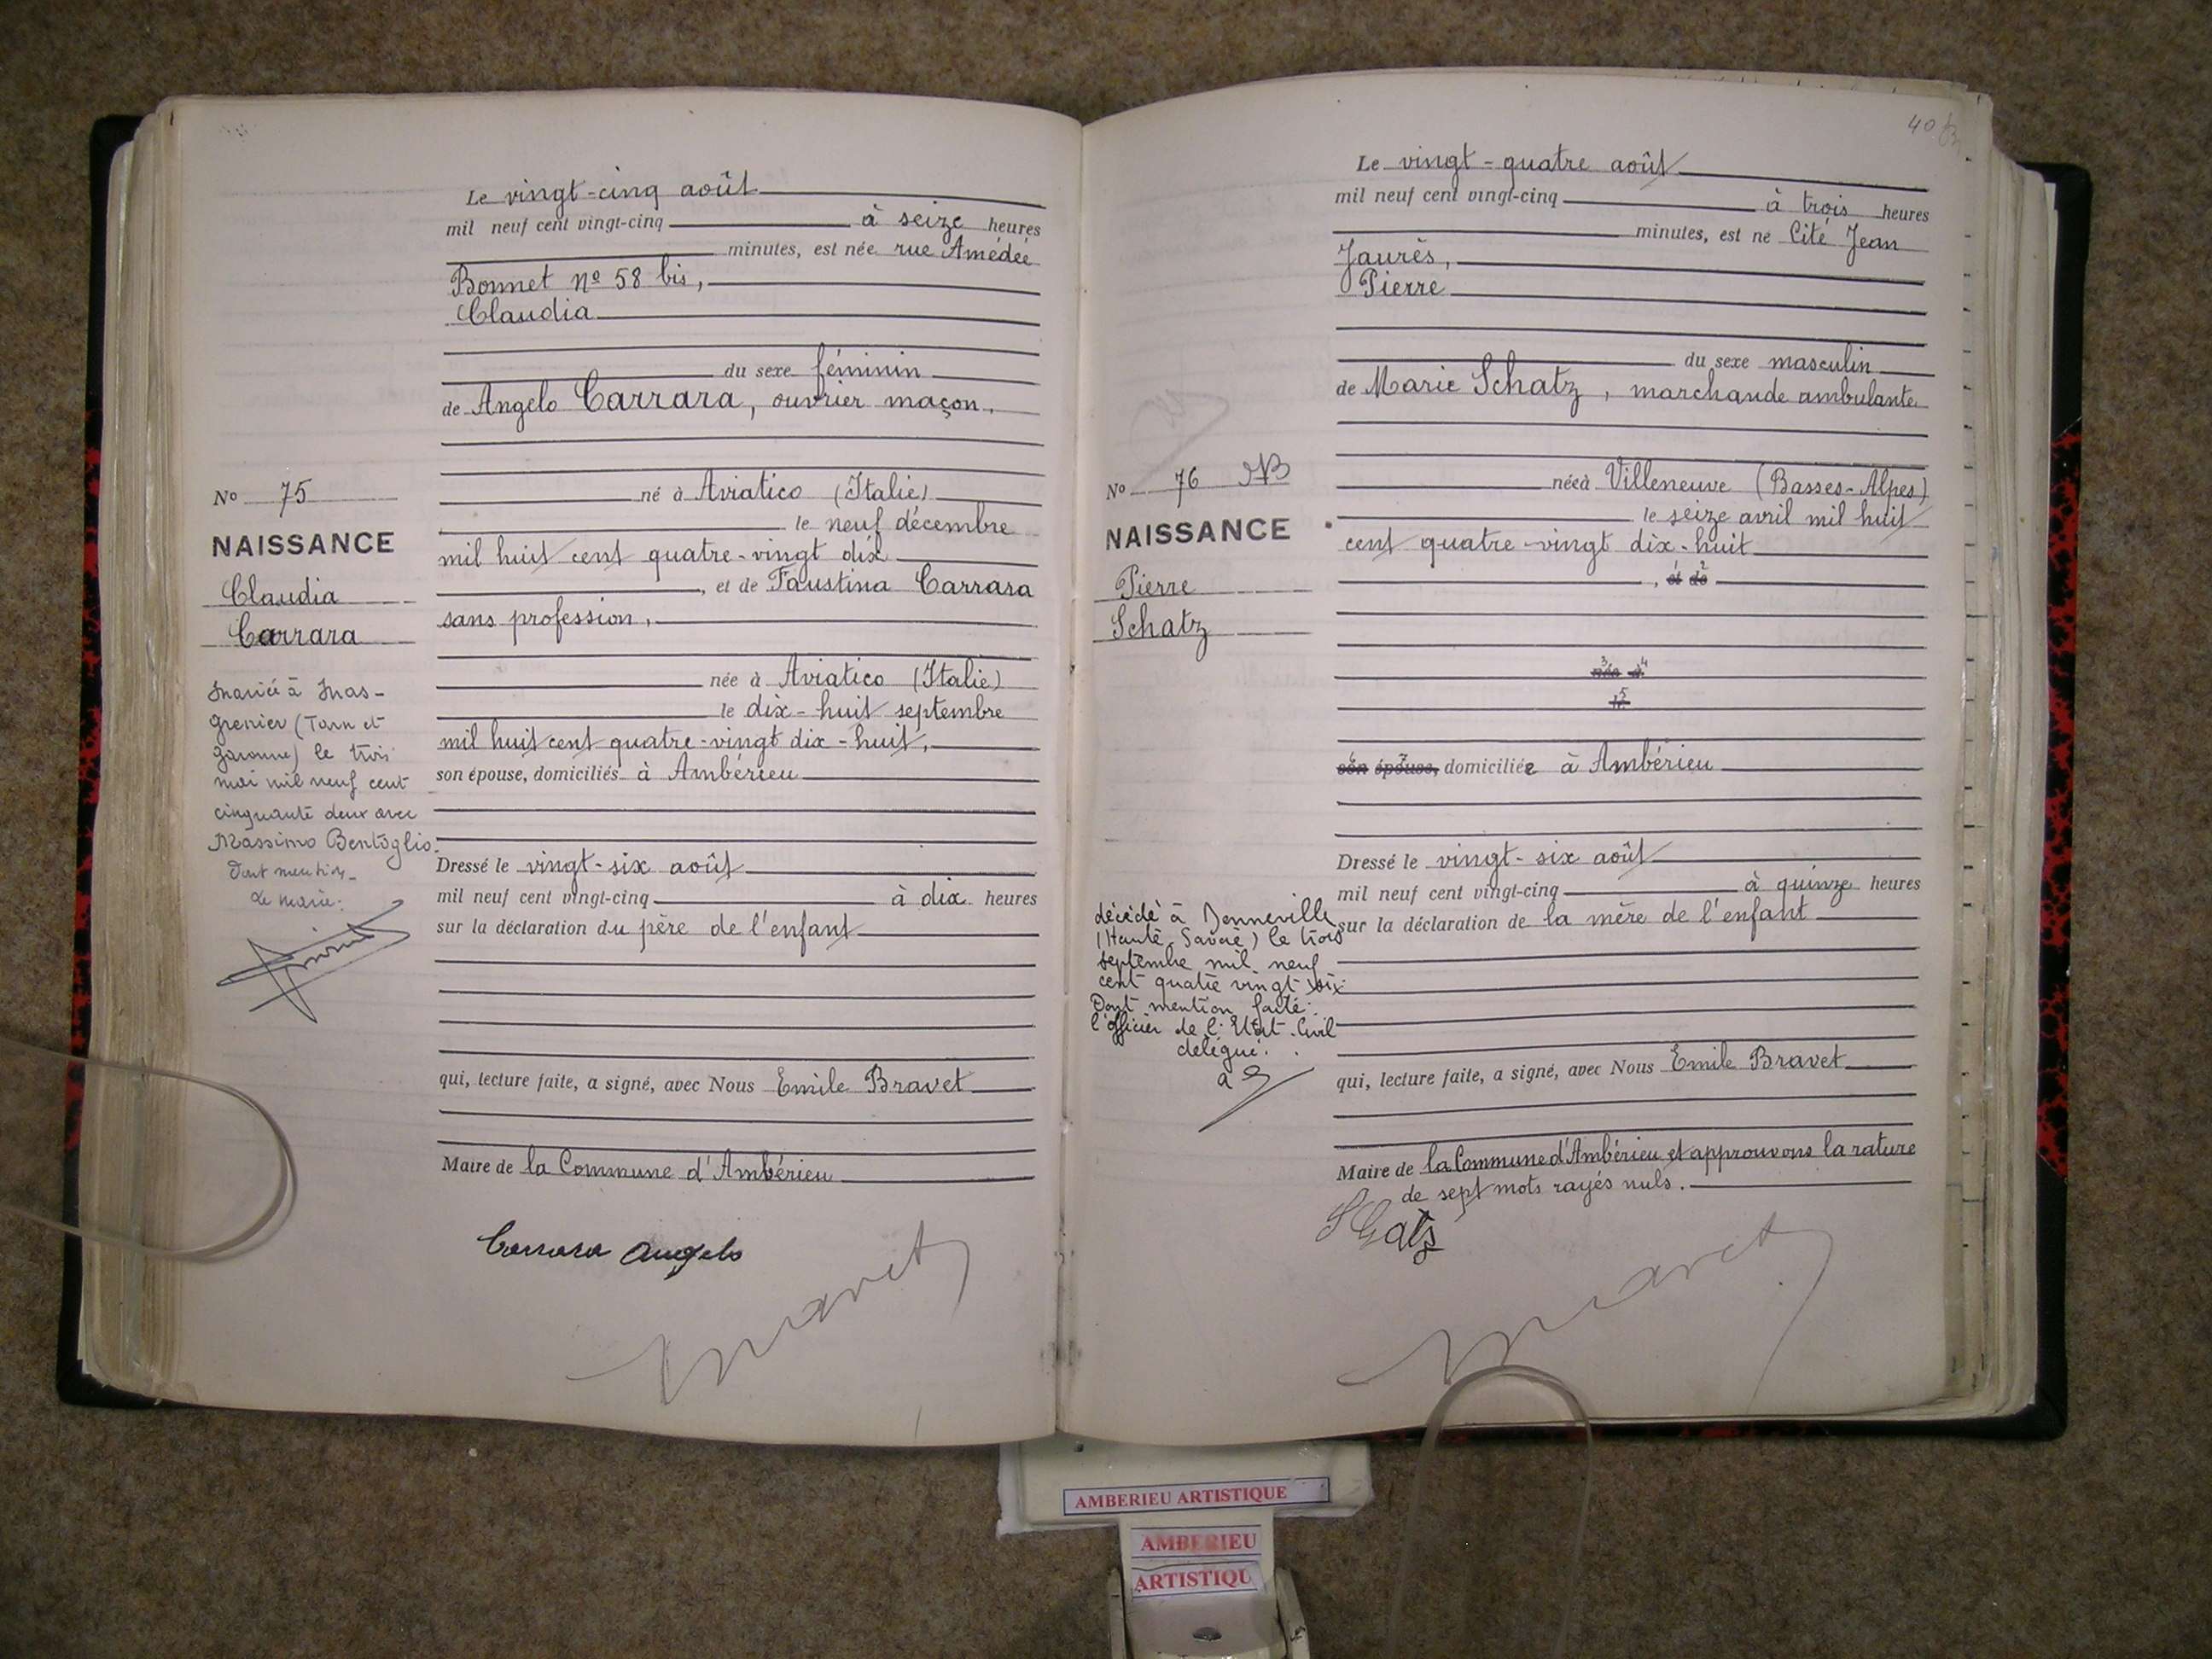 Le vingt-cinq août
mil neuf cent vingt-cinq à seize heures
minutes, est née rue Amédée
Bonnet nº 58 bis,
Claudia
du sexe féminin
de Angelo Carrara, ouvrier maçon,
né à Aviatico (Italie)
le neuf décembre
mil huit cent quatre-vingt dix
, et de Faustina Carrara
sans profession,
née à Aviatico (Italie)
le dix-huit septembre
mil huit cent quatre-vingt dix-huit,
son épouse, domiciliés à Ambérieu
Dressé le vingt-six août
mil neuf cent vingt-cinq à dix heures
sur la déclaration du père de l'enfant
qui, lecture faite, a signé, avec Nous Emile Bravet
Maire de la Commune d'Ambérieu
Carrara Angelo
No 75
NAISSANCE
Claudia
Carrara
Mariée à Mas-
grenier (Tarn et
garonne) le trois
mai mil neuf cent
cinquante deux avec
Massimo Bentoglio.
Dont mention_
Le maire:
40
Le vingt-quatre août
mil neuf cent vingt-cinq à trois heures
minutes, est né Cité Jean
Jaurès,
Pierre
du sexe masculin
de Marie Schatz, marchande ambulante
née à Villeneuve (Basses-Alpes)
le seize avril mil huit
cent quatre-vingt dix-huit
, et de
née à
le
son épouse, domiciliée à Ambérieu
Dressé le vingt-six août
mil neuf cent vingt-cinq à quinze heures
sur la déclaration de la mère de l'enfant
qui, lecture faite, a signé, avec Nous Emile Bravet
Maire de la Commune d'Ambérieu et approuvons la rature
de sept mots rayés nuls.
No 76
NAISSANCE
Pierre
Schatz
décédé à Bonneville
(Haute-Savoie) le trois
septembre mil neuf
cent quatre vingt six
Dont mention faite.
l'officier de l'Etat-Civil
délégué.
AMBERIEU ARTISTIQUE
AMBERIEU
ARTISTIQU